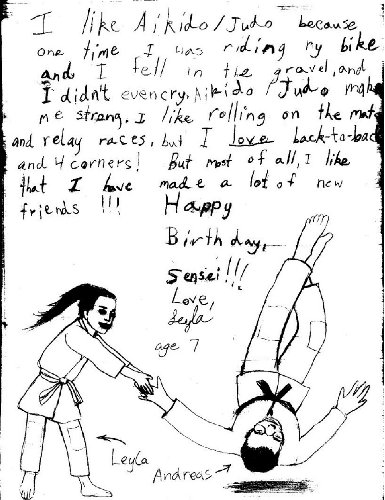 I like Aikido/Judo because
one time I was riding my bike
and I fell in the gravel, and
I didn't even cry. Aikido/Judo make
me strong. I like rolling on the mat
and relay races, but I love back-to-back
and 4 corners! But most of all, I like
that I have made a lot of new
friends!!! Happy
Birthday,
Sensei!!!
Love,
Leyla
age 7
Leyla
Andreas